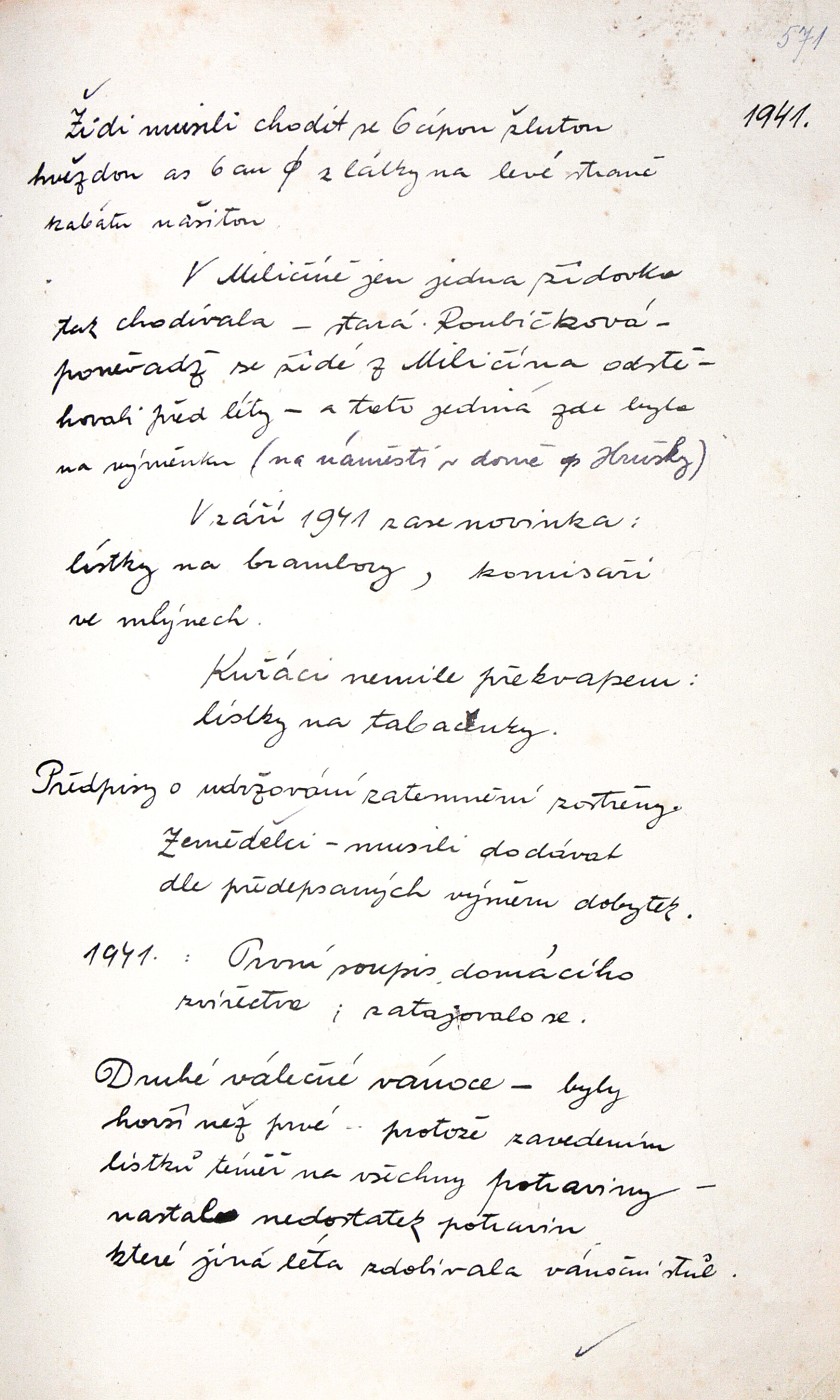 571
1941.
Židi musili chodit se 6cípou žlutou
hvězdou as 6 cm ϕ z látky na levé straně
kabátu našitou
V Miličíně jen jedna židovka
tak chodívala – stará Roubíčková –
poněvadž se židé z Miličína odstě-
hovali před léty – a tato jediná zde byla
na výměnku (na náměstí v domě p Hrušky)
V září 1941 zase novinka :
lístky na brambory, komisaři
ve mlýnech.
Kuřáci nemile překvapeni :
lístky na tabačenky.
Předpisy o udržování zatemnění zostřeny.
Zemědělci – musili dodávat
dle předepsaných výměru dobytek.
1941. : První soupis domácího
zvířectva ; zatajovalo se.
Druhé válečné vánoce – byly
horší než prvé – protože zavedením
lístků téměř na všechny potraviny –
nastal nedostatek potravin
které jiná léta zdobívala vánoční stůl.